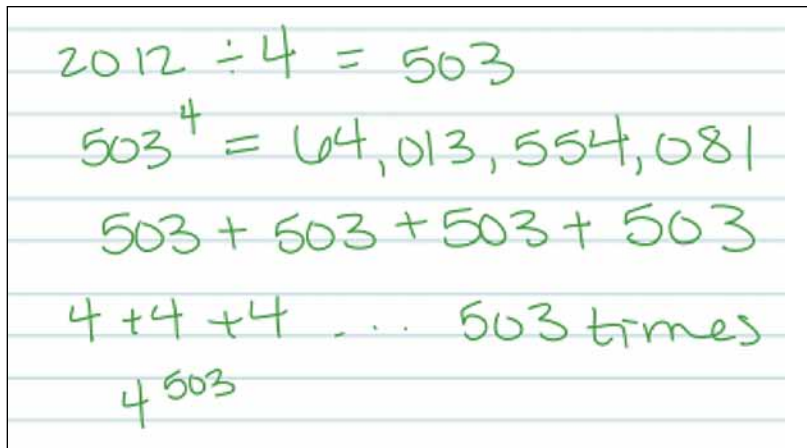 2012 ÷ 4 = 503
503⁴ = 64,013,554,081
503 + 503 + 503 + 503
4 + 4 + 4 ... 503 times
4⁵⁰³